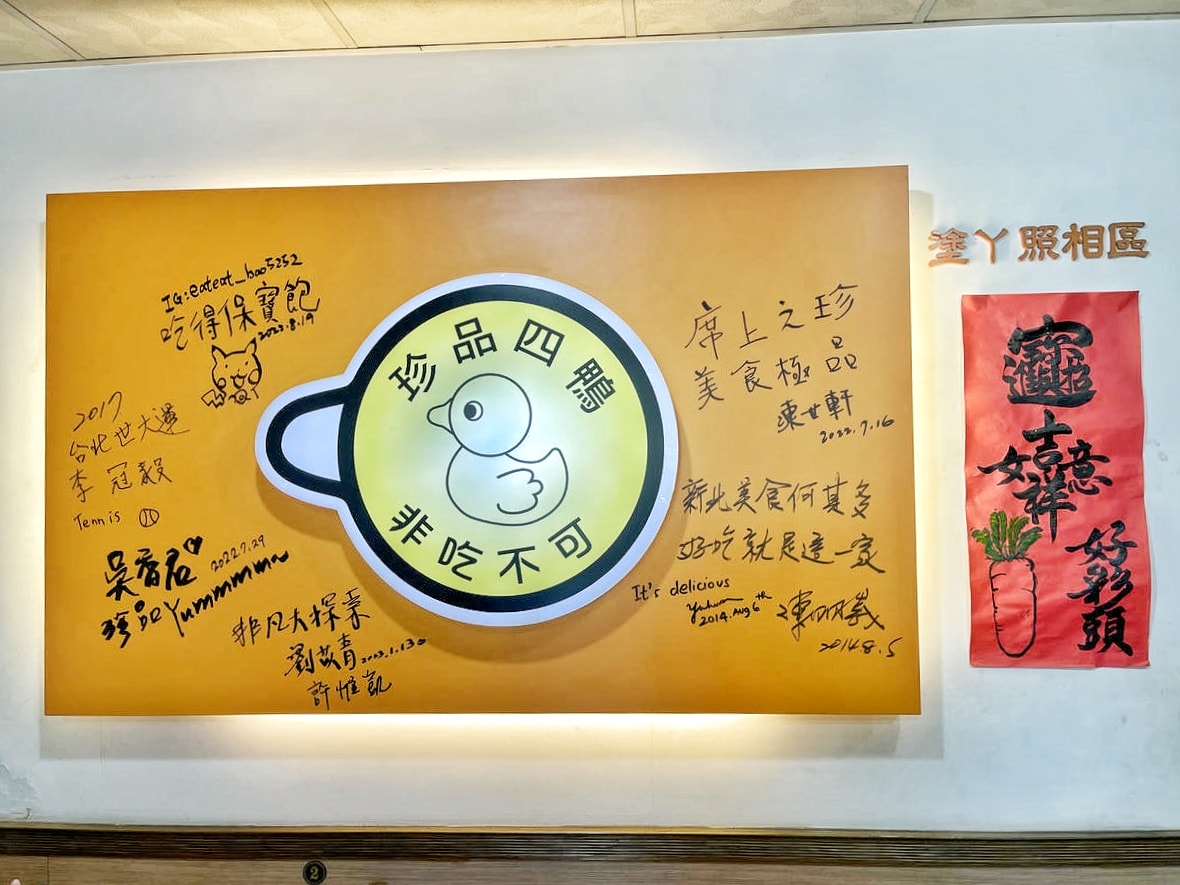 塗丫照相區
IG:eateat_boo5252
吃得保寶飽
2023.8.19
珍品四鴨
非吃不可
席上之珍
美食極品
2022.7.16
2017
台北世大運
李冠毅
Tennis
新北美食何其多
好吃就是這一家
2014.8.5
It's delicious
2014.Aug 6th
吳香君
2022.7.29
珍品Yummmmm
非凡大探索
許惟凱
吉祥如意
好彩頭
2